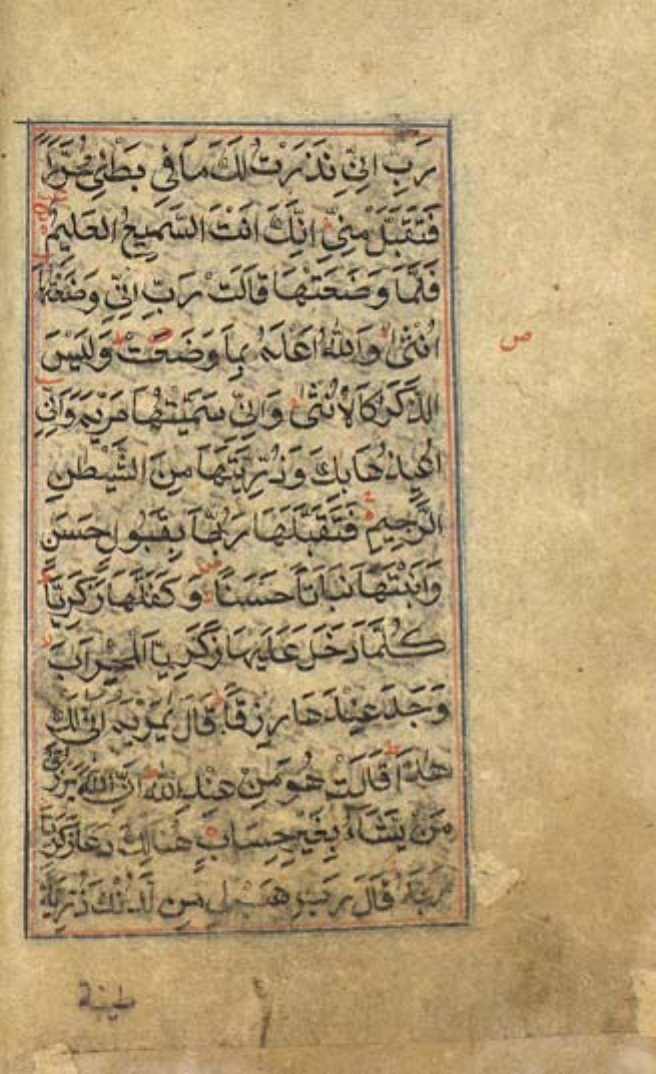 رَبِّ اِنِّي نَذَرْتُ لَكَ مَا فِي بَطْنِي مُحَرَّرًا
فَتَقَبَّلْ مِنِّي اِنَّكَ اَنْتَ السَّمِيعُ الْعَلِيمُ
فَلَمَّا وَضَعَتْهَا قَالَتْ رَبِّ اِنِّي وَضَعْتُهَا
اُنْثٰى وَاللّٰهُ اَعْلَمُ بِمَا وَضَعَتْ وَلَيْسَ
الذَّكَرُ كَالْاُنْثٰى وَاِنِّي سَمَّيْتُهَا مَرْيَمَ وَاِنِّي
اُعِيذُهَا بِكَ وَذُرِّيَّتَهَا مِنَ الشَّيْطٰنِ
الرَّجِيمِ فَتَقَبَّلَهَا رَبُّهَا بِقَبُولٍ حَسَنٍ
وَاَنْبَتَهَا نَبَاتًا حَسَنًا وَكَفَّلَهَا زَكَرِيَّا
كُلَّمَا دَخَلَ عَلَيْهَا زَكَرِيَّا الْمِحْرَابَ
وَجَدَ عِنْدَهَا رِزْقًا قَالَ يٰمَرْيَمُ اَنّٰى لَكِ
هٰذَا قَالَتْ هُوَ مِنْ عِنْدِ اللّٰهِ اِنَّ اللّٰهَ يَرْزُقُ
مَنْ يَشَاءُ بِغَيْرِ حِسَابٍ هُنَالِكَ دَعَا زَكَرِيَّا
رَبَّهُ قَالَ رَبِّ هَبْ لِي مِنْ لَدُنْكَ ذُرِّيَّةً
طيبة
ص